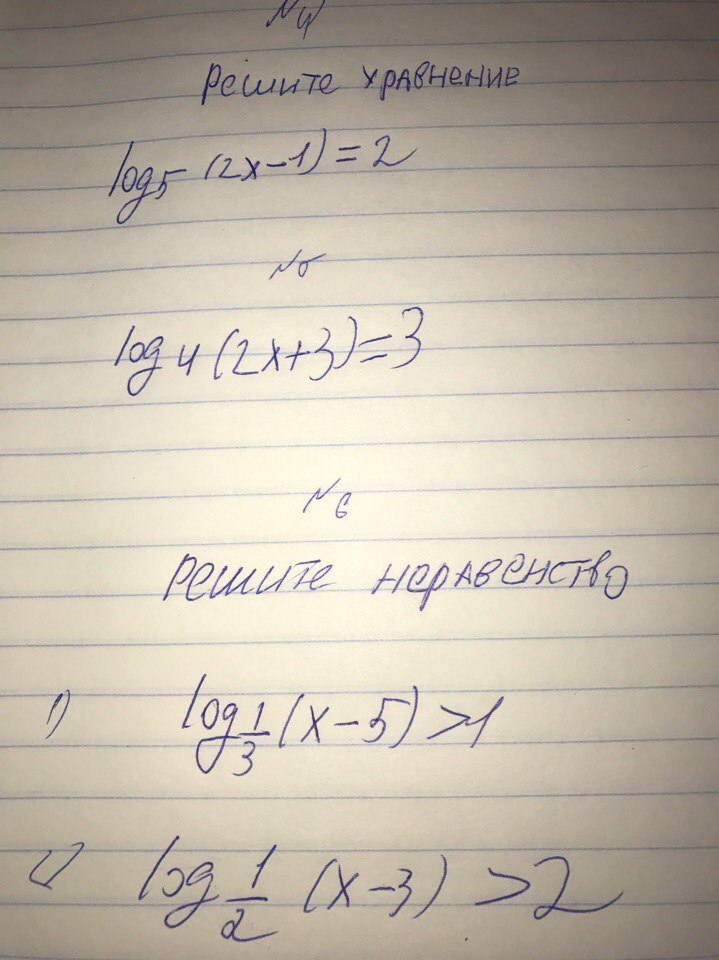 №4
Решите уравнение
log₅ (2x-1) = 2
№5
log₄ (2x+3) = 3
№6
Решите неравенство
1) log 1/3 (x-5) > 1
2) log 1/2 (x-3) > 2